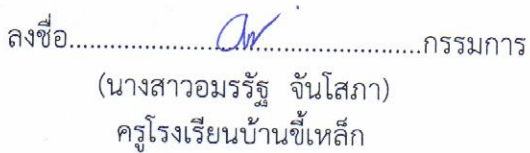 ลงชื่อ........................................................กรรมการ
(นางสาวอมรรัฐ จันโสภา)
ครูโรงเรียนบ้านขี้เหล็ก